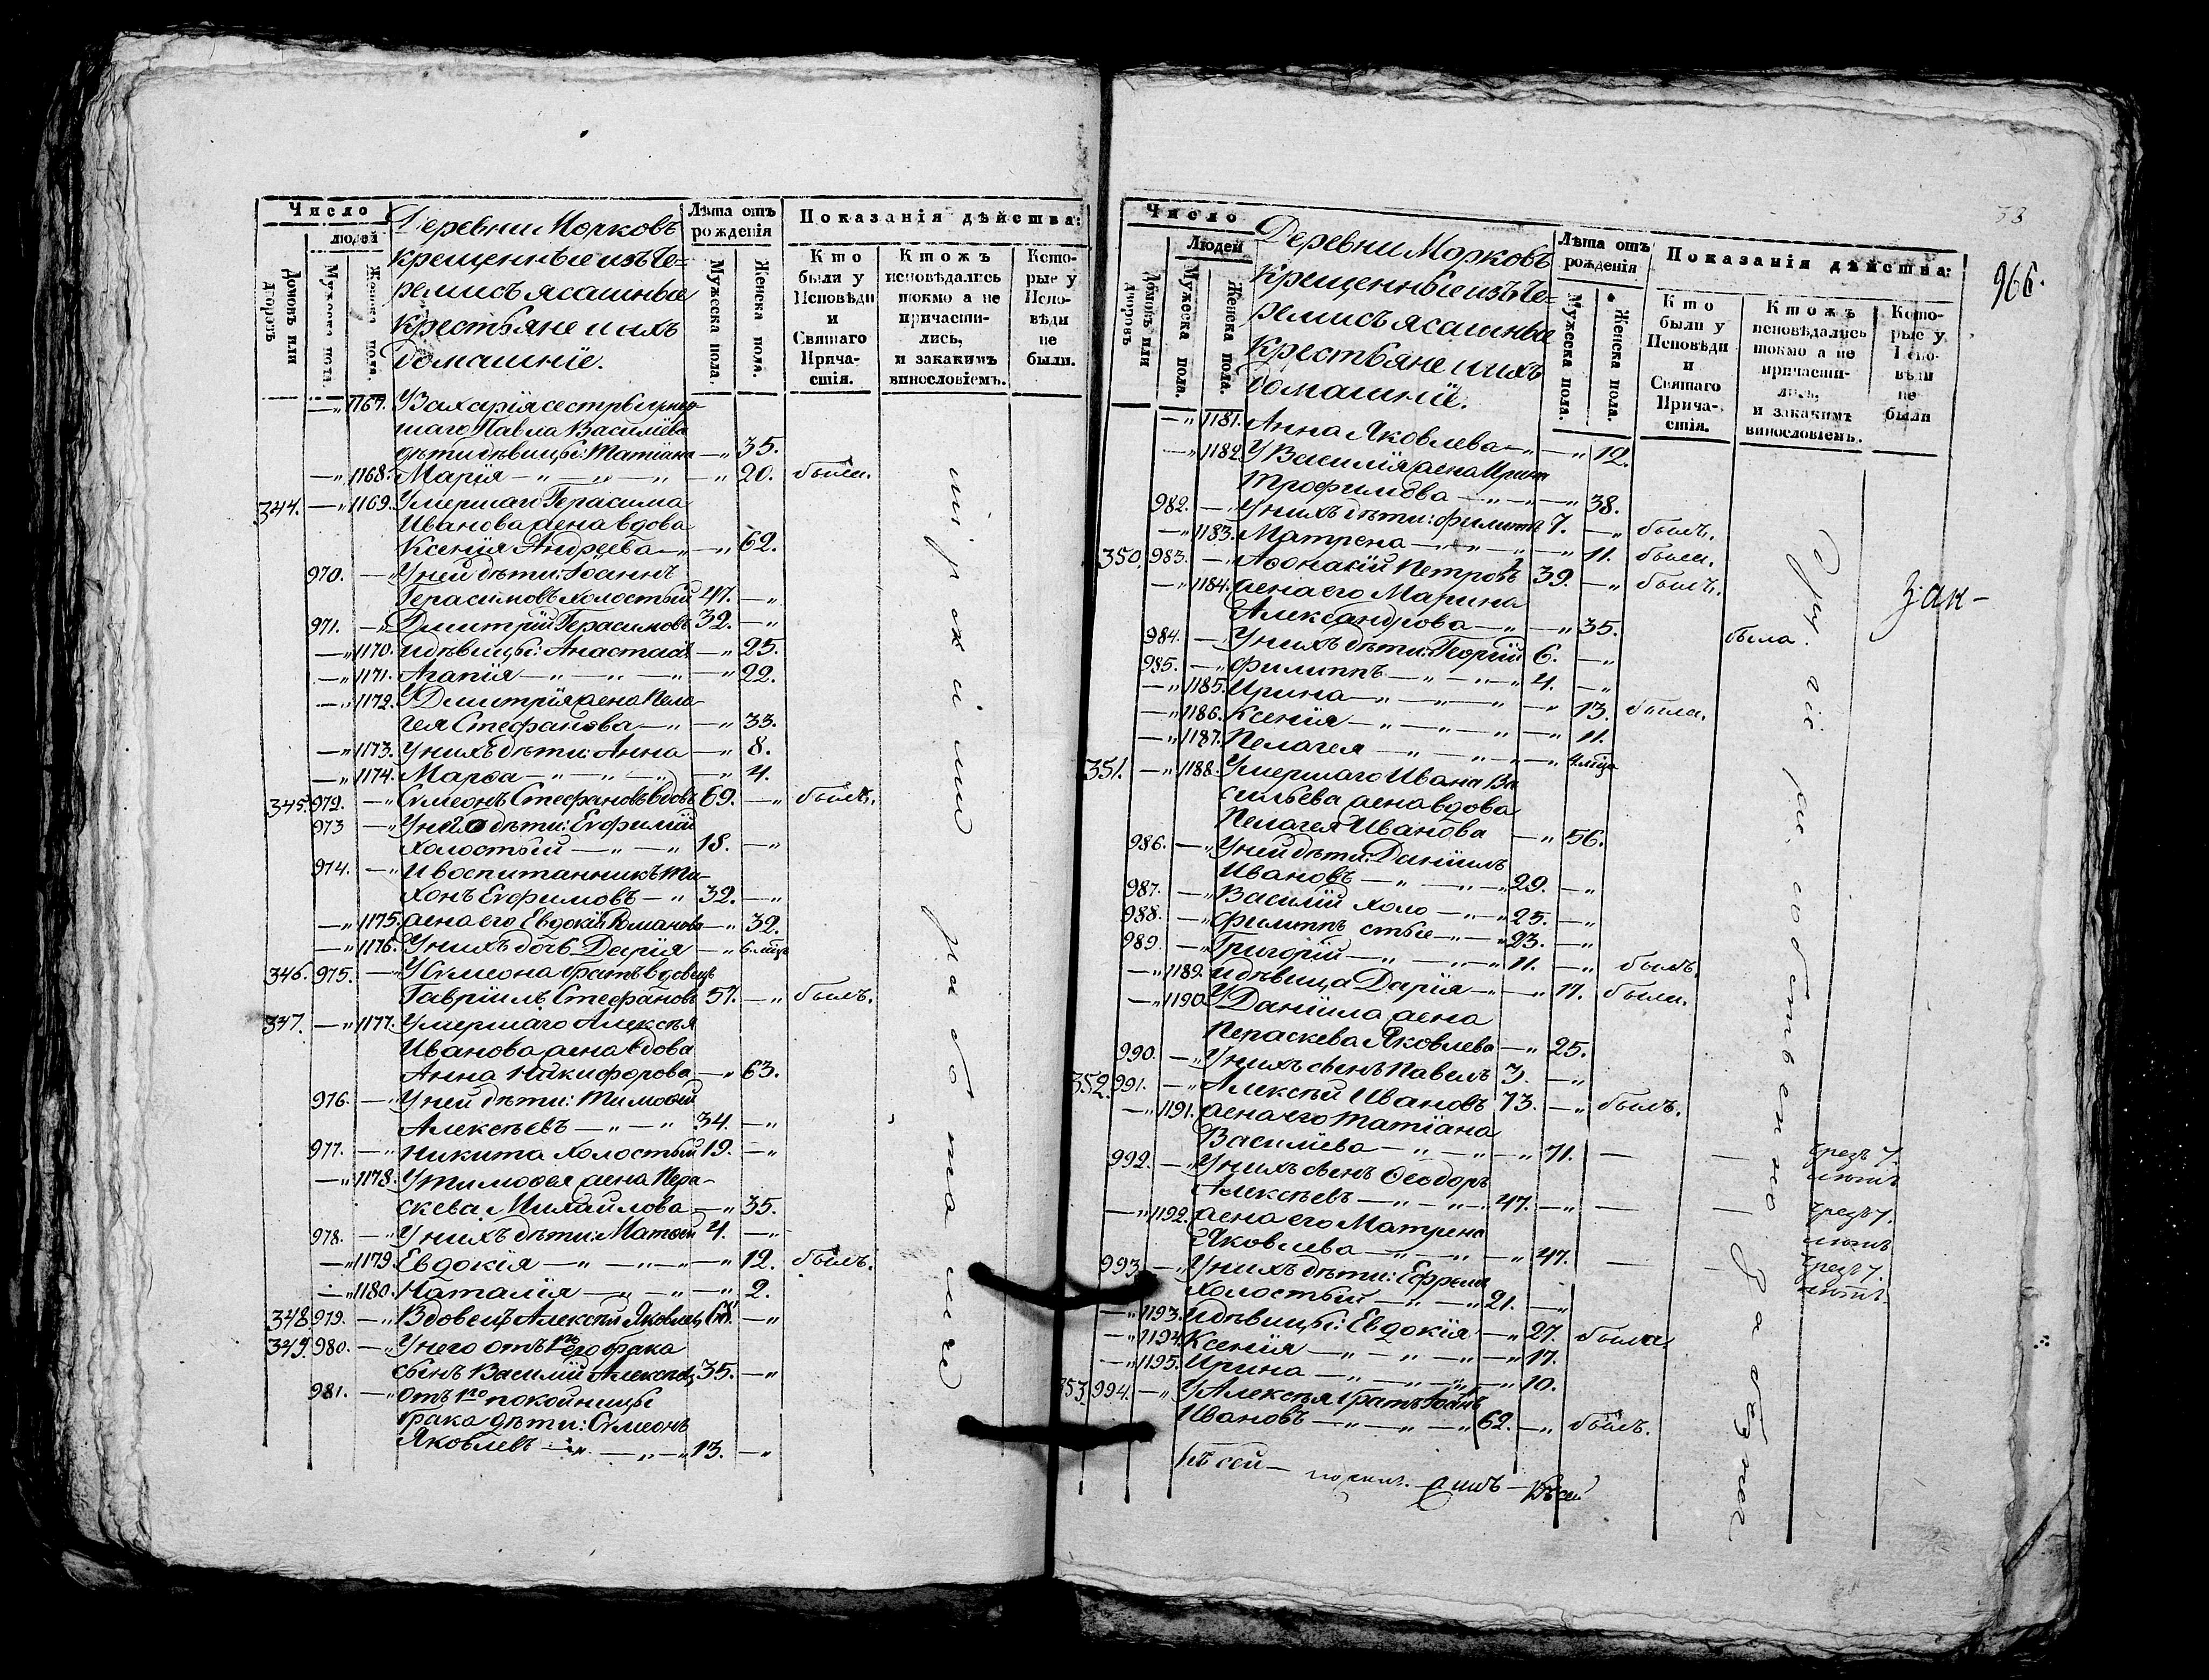 Число
людей
Домовъ или дворовъ
Мужеска пола.
Женска пола.
Деревни Морковъ
крещенные изъ че-
ремисъ ясашные
крестьяне и ихъ
домашніе.
Лѣта отъ рожденія
Мужеска пола.
Женска пола.
Показанія дѣйства:
Кто были у Исповѣди и Святаго Прича-стія.
Ктожъ исповѣдались токмо а не причасти-лись, и закакимъ винословіемъ.
Кото-рые у Испо-вѣди не были.
—„ 1167. У Захарія сестры умер-
шаго Павла Василіева
дѣти дѣвицы: Татіана —„ 35.
—„ 1168. Марія —„ —„ —„ —„ 20. были.
344. —„ 1169. Умершаго Герасима
Иванова жена вдова
Ксенія Андреева —„ —„ 62.
970. —„ У ней дѣти: Іоаннъ
Герасимовъ холостый 47. —„
971. —„ Дмитрій Герасимовъ 32. —„
—„ 1170. и дѣвицы: Анастасія —„ 25.
—„ 1171. Агапія —„ —„ —„ —„ 22.
—„ 1172. У Дмитрія жена Пела-
гея Стефанова —„ —„ 33.
—„ 1173. У нихъ дѣти: Анна —„ 8.
—„ 1174. Марѳа —„ —„ —„ —„ 4.
345. 972. —„ Сѵмеонъ Стефановъ вдовъ 69. —„ былъ.
973 —„ У него дѣти: Евфимій
холостый —„ —„ 18. —„
974. —„ И воспитанникъ Ти-
хонъ Евфимовъ —„ 32. —„
—„ 1175. жена его Евдокія Романова —„ 32.
—„ 1176. У нихъ дочь Дарія —„ 6. мѣц
346. 975. —„ У Сѵмеона братъ вдовецъ
Гавріилъ Стефановъ 57. —„ былъ.
347. —„ 1177. Умершаго Алексѣя
Иванова жена вдова
Анна Никифорова —„ 63.
976. —„ У ней дѣти: Тимоѳей
Алексѣевъ —„ —„ 34. —„
977. —„ Никита холостый 19. —„
—„ 1178. У Тимоѳея жена Пера-
скева Михайлова —„ 35.
978. —„ У нихъ дѣти: Матѳей 4. —„
—„ 1179. Евдокія —„ —„ —„ 12. былъ.
—„ 1180. Наталія —„ —„ —„ 2.
348. 979. —„ Вдовецъ Алексѣй Яковлевъ —„
349. 980. —„ У него отъ 1го его брака
сынъ Василій Алексѣев 35. —„
981. —„ отъ 1го покойницы
брака дѣти: Сѵмеонъ
Яковлевъ —„ —„ 13. —„
966.
Число
Людей
Домовъ или дворовъ
Мужеска пола.
Женска пола.
Деревни Морковъ
крещенные изъ че-
ремисъ ясашные
крестьяне и ихъ
домашніе.
Лѣта отъ рожденія
Мужеска пола.
Женска пола.
Показанія дѣйства:
Кто были у Исповѣди и Святаго Прича-стія.
Ктожъ исповѣдались токмо а не причасти-лись, и закакимъ винословіемъ.
Кото-рые у Испо-вѣди не были
—„ 1181. Анна Яковлева —„ —„ 12.
—„ 1182. У Василія жена Ирина
Трофимова —„ —„ —„ 38.
982. —„ У нихъ дѣти: Филиппъ 7. —„ былъ.
—„ 1183. Матрена —„ —„ —„ 11. были.
350. 983. —„ Аѳонасій Петровъ 39. —„ былъ.
—„ 1184. жена его Марина
Александрова —„ —„ 35. была.
984. —„ У нихъ дѣти: Георгій 6. —„
985. —„ Филиппъ —„ —„ 4. —„
—„ 1185. Ирина —„ —„ —„ 13. была.
—„ 1186. Ксенія —„ —„ —„ 11.
—„ 1187. Пелагея —„ —„ —„ 4. мѣц
351. —„ 1188. Умершаго Ивана Ва
сильева жена вдова
Пелагея Иванова —„ 56.
986. —„ У ней дѣти: Даніилъ
Ивановъ —„ —„ 29. —„
987. —„ Василій холо —„ 25. —„
988. —„ Филиппъ стые —„ 23. —„
989. —„ Григорій —„ —„ 11. —„ былъ.
—„ 1189. и дѣвица Дарія —„ —„ 17. были.
—„ 1190. У Даніила жена
Пераскева Яковлева —„ 25.
990. —„ У нихъ сынъ Павелъ 3. —„
352. 991. —„ Алексѣй Ивановъ 73. —„ былъ.
—„ 1191. жена его Татіана
Василіева —„ —„ —„ 71. — — чрезъ 7. лѣтъ
992. —„ У нихъ сынъ Ѳеодоръ
Алексѣевъ —„ —„ 47. —„ — — чрезъ 7. лѣтъ
—„ 1192. жена его Матрена
Яковлева —„ —„ —„ 47. — — чрезъ 7. лѣтъ
993. —„ У нихъ дѣти: Ефремъ
холостый —„ —„ 21. —„
—„ 1193. и дѣвицы: Евдокія —„ 27. была.
—„ 1194. Ксенія —„ —„ —„ —„ 17.
—„ 1195. Ирина —„ —„ —„ —„ 10.
353. 994. —„ У Алексѣя братъ Іоаннъ
Ивановъ —„ —„ —„ 62. —„ былъ.
Къ сей — — Къ сей
зак-